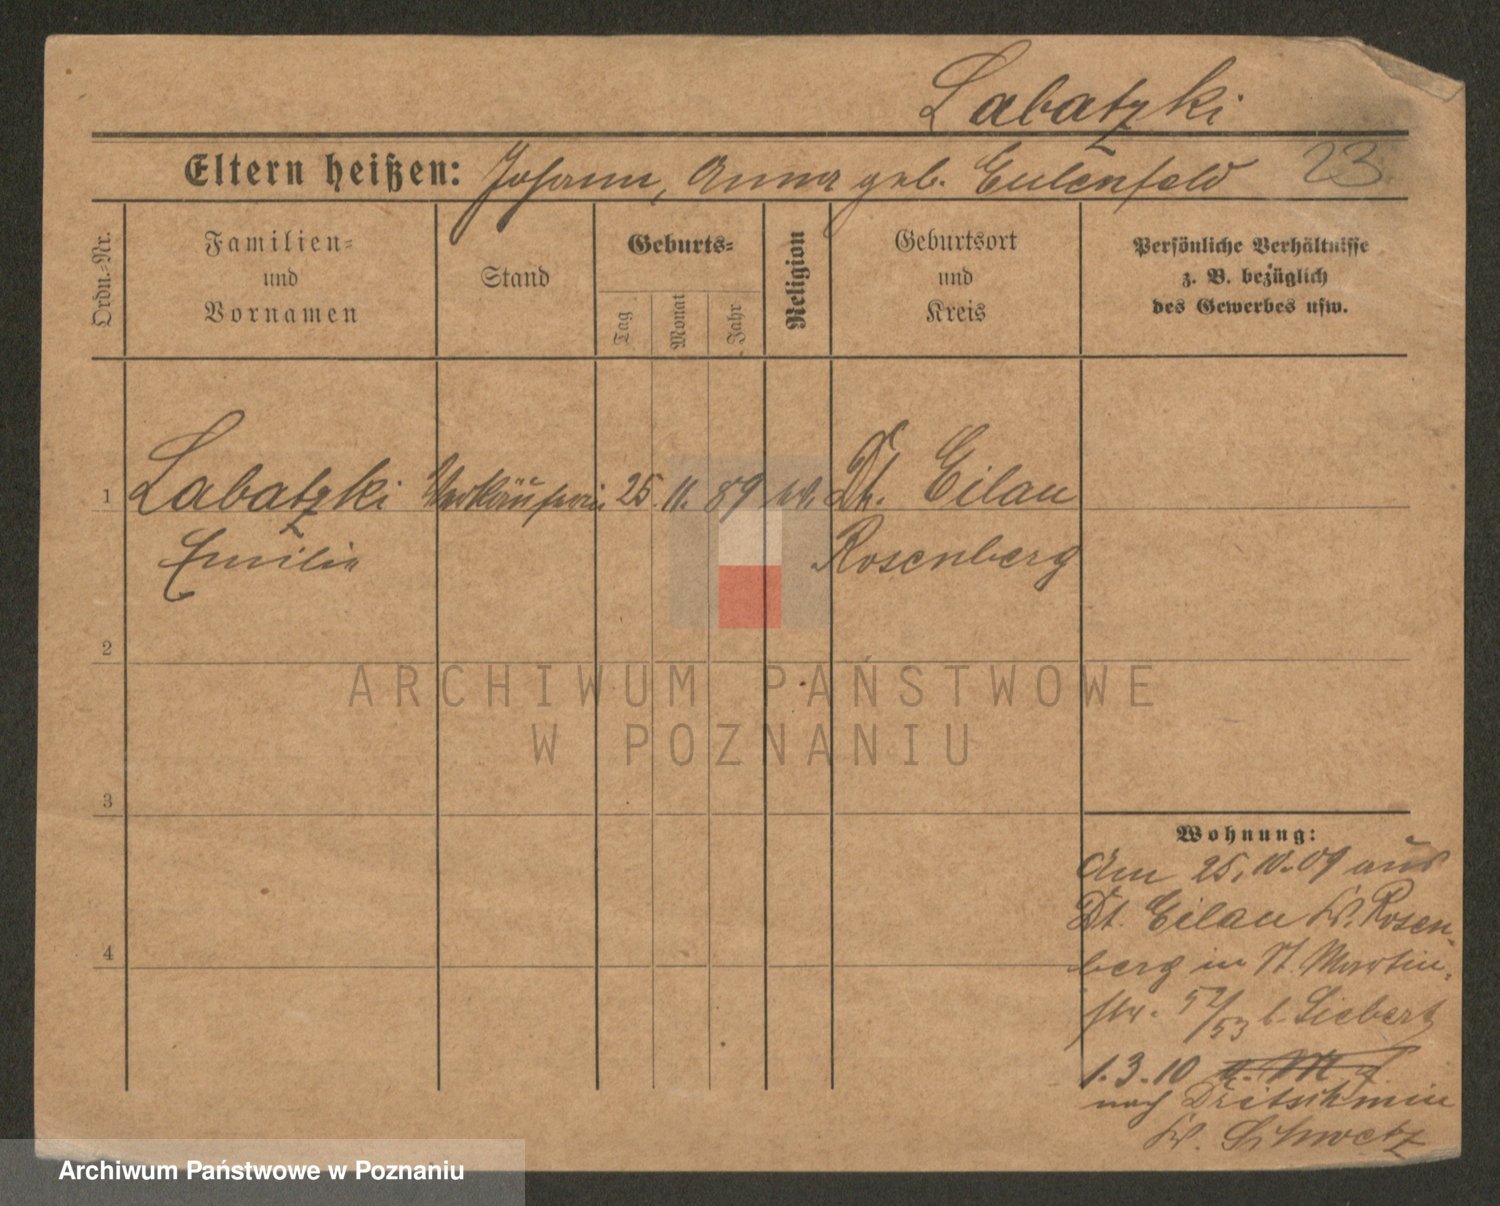 Labatzki
Eltern heißen: Johann, Anna geb. Eulenfeld 23
Ordn.-Nr.
Familien- und Vornamen
Stand
Geburts-
Tag
Monat
Jahr
Religion
Geburtsort und Kreis
Persönliche Verhältnisse
z. B. bezüglich
des Gewerbes usw.
1 Labatzki Verkäuferin 25. 11. 89 ev. Dt. Eilau
Emilie Rosenberg
2
3
4
Wohnung:
Am 25.10.09 aus
Dt. Eilau Kr. Rosen-
berg in St. Martin-
str. 52/53 b. Siebert
1.3.10
nach Dritschmin
Kr. Schwetz
ARCHIWUM PAŃSTWOWE
W POZNANIU
Archiwum Państwowe w Poznaniu